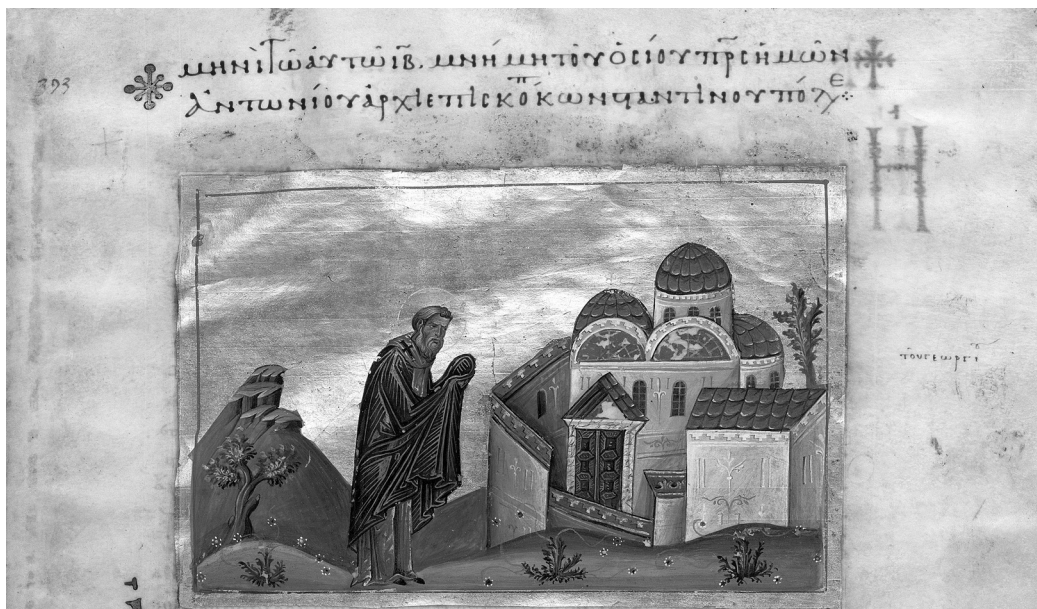 393
μηνὶ τῶ αὐτῶ ιβ. μνήμη τοῦ ὁσίου πρσ ἡμῶν
Ἀντωνίου ἀρχιεπισκόπ κωνσταντινουπόλε
Η
τοῦ γεωργί